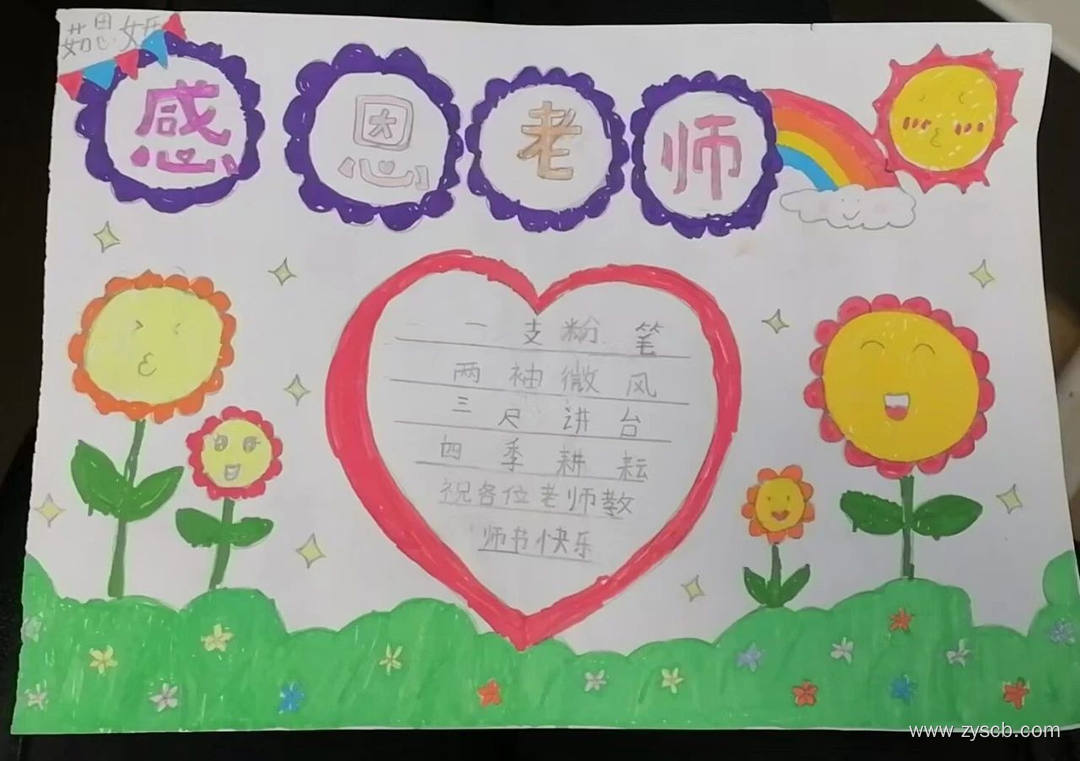 茹思妍
感恩老师
一支粉笔
两袖微风
三尺讲台
四季耕耘
祝各位老师教
师节快乐
www.zyscb.com